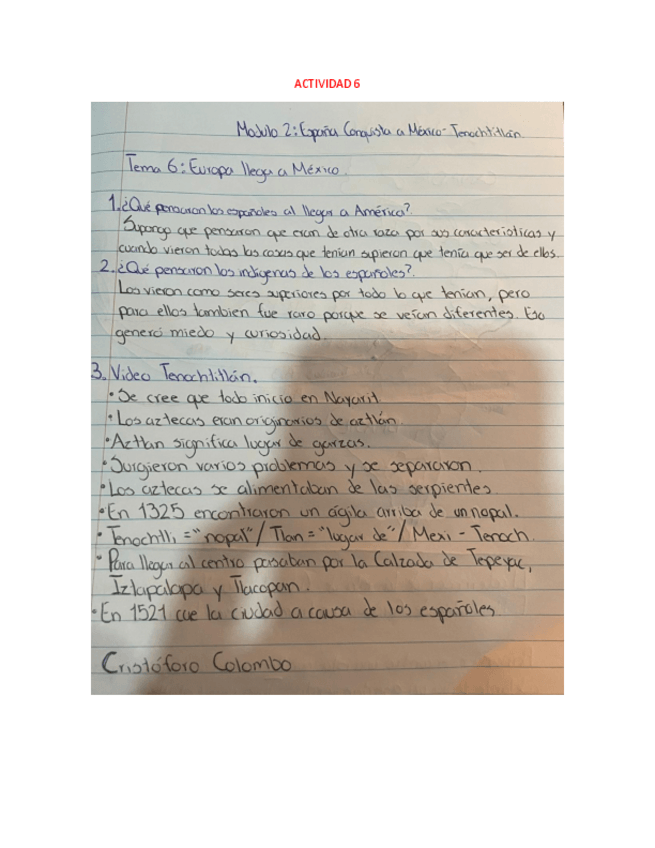 ACTIVIDAD 6
Modulo 2: España Conquista a México - Tenochtitlán
Tema 6: Europa llega a México.
1. ¿Qué pensaron los españoles al llegar a América?
Supongo que pensaron que eran de otra raza por sus caracteristicas y
cuando vieron todas las cosas que tenían supieron que tenía que ser de ellos.
2. ¿Qué pensaron los indígenas de los españoles?
Los vieron como seres superiores por todo lo que tenían, pero
para ellos tambien fue raro porque se veían diferentes. Eso
generó miedo y curiosidad.
3. Video Tenochtitlán.
• Se cree que todo inicio en Nayarit
• Los aztecas eran originarios de aztlán.
• Aztlan significa lugar de garzas.
• Surgieron varios problemas y se separaron.
• Los aztecas se alimentaban de las serpientes
• En 1325 encontraron un águila arriba de un nopal.
• Tenochtli = "nopal" / Tlan = "lugar de" / Mexi - Tenoch.
• Para llegar al centro pasaban por la Calzada de Tepeyac,
Iztapalapa y Tlacopan.
• En 1521 cae la ciudad a causa de los españoles
Cristóforo Colombo